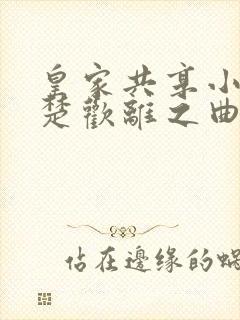 皇家共享小
楚歡離之曲
佔在邊缘的蝸